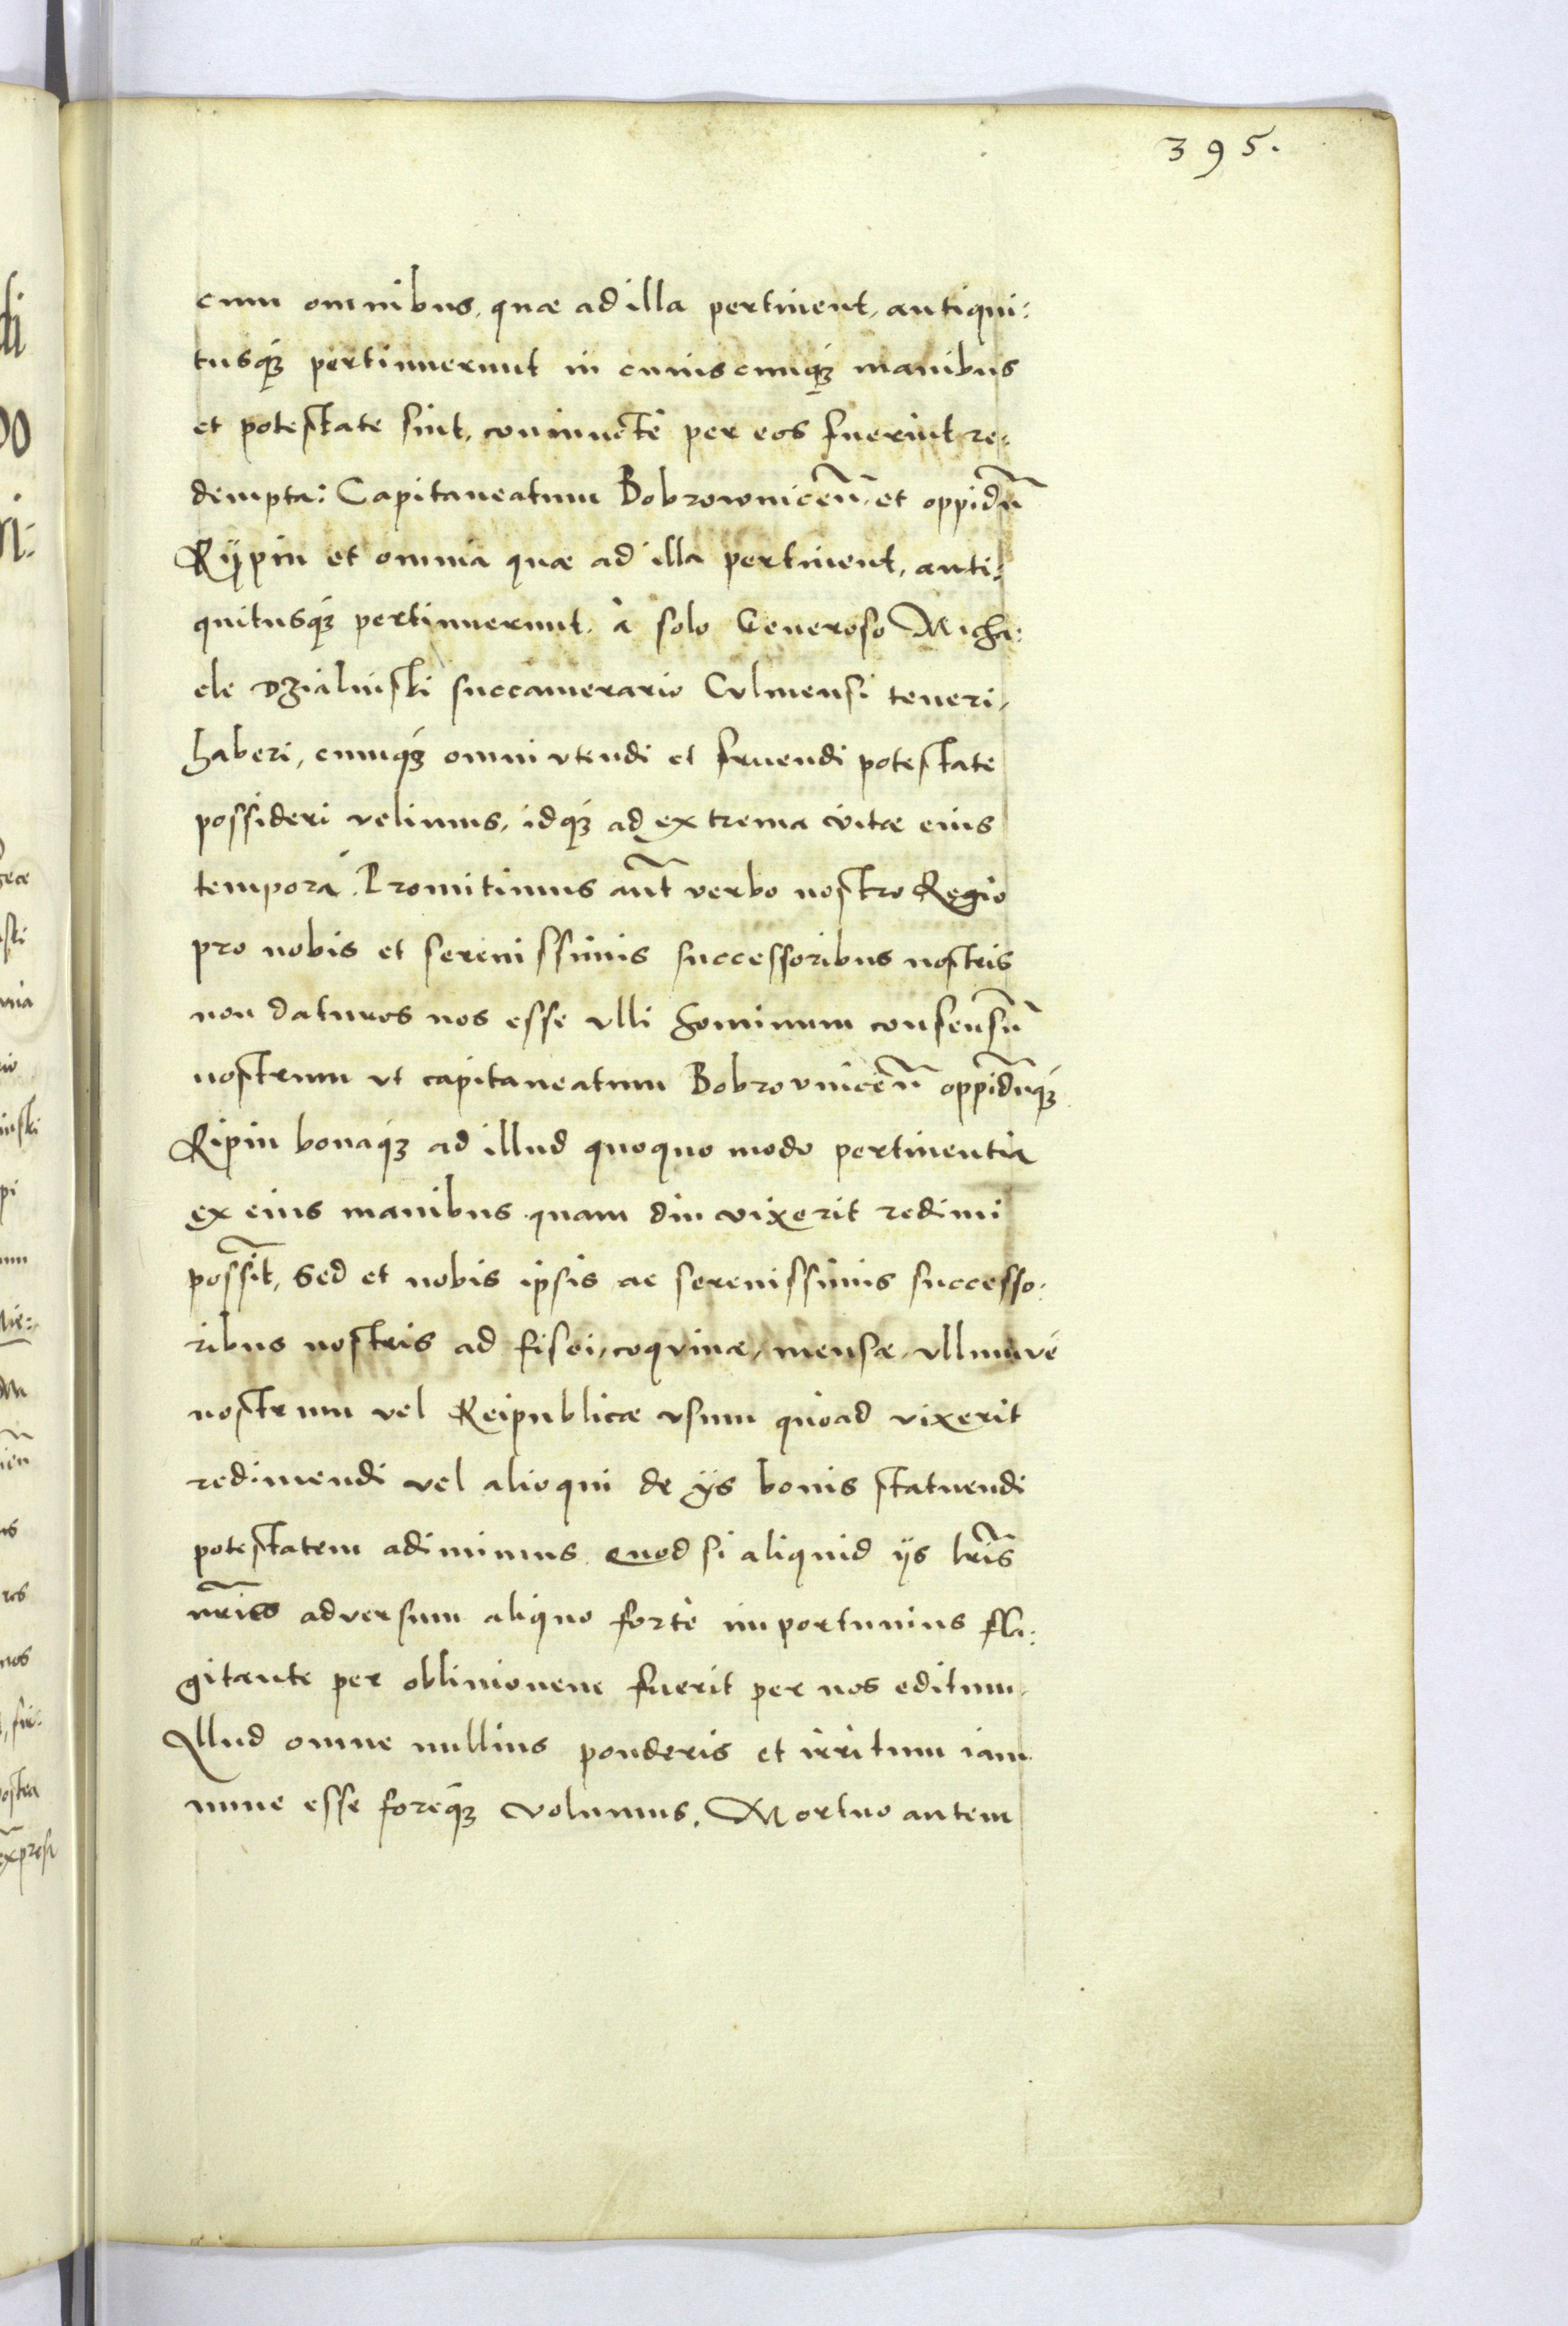 395.
cum omnibus, quæ ad illa pertinent, antiqui:
tusq₃ pertinuerunt in cuiuscunq₃ manibus
et potestate sint, coniunctè per eos fuerint re:
dempta: Capitaneatum Bobrowniceñ. et oppidũ
Rÿpin et omnia quæ ad illa pertinent, anti:
quitusq₃ pertinuerunt. à solo Generoso Micha:
ele Dzialinski succamerario Culmensi teneri,
haberi, cumq₃ omni vtendi et fruendi potestate
possideri velimus, idq₃ ad extrema vitæ eius
tempora. Promitimus aut̃ verbo nostro Regio
pro nobis et serenissimis successoribus nostris
non daturos nos esse vlli hominum consensũ
nostrum vt capitaneatum Bobrovniceñ oppidũq₃
Ripin bonaq₃ ad illud quoquo modo pertinentia
ex eius manibus quam diu vixerit redimi
possit̃, Sed et nobis ipsis ac serenissimis successo:
ribus nostris ad fisci, coquinæ, mensæ, vllumve
nostrum vel Reipublicæ vsum quoad vixerit
redimendi vel alioqui de ijs bonis statuendi
potestatem adimimus. Quod si aliquid ijs lr̃is
nr̃is adversum aliquo fortè importunius fla:
gitante per oblivionem fuerit per nos editum.
Illud omne nullius ponderis et irritum iam
nunc esse foreq₃ volumus. Mortuo autem